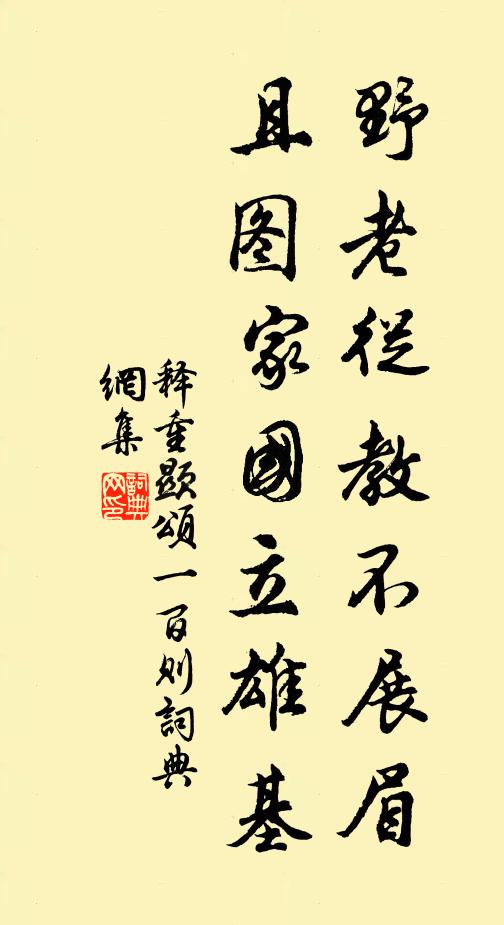 野老從教不展眉
且图家國立雄基
释重显頌一百则詞典
網集
詞典
网印